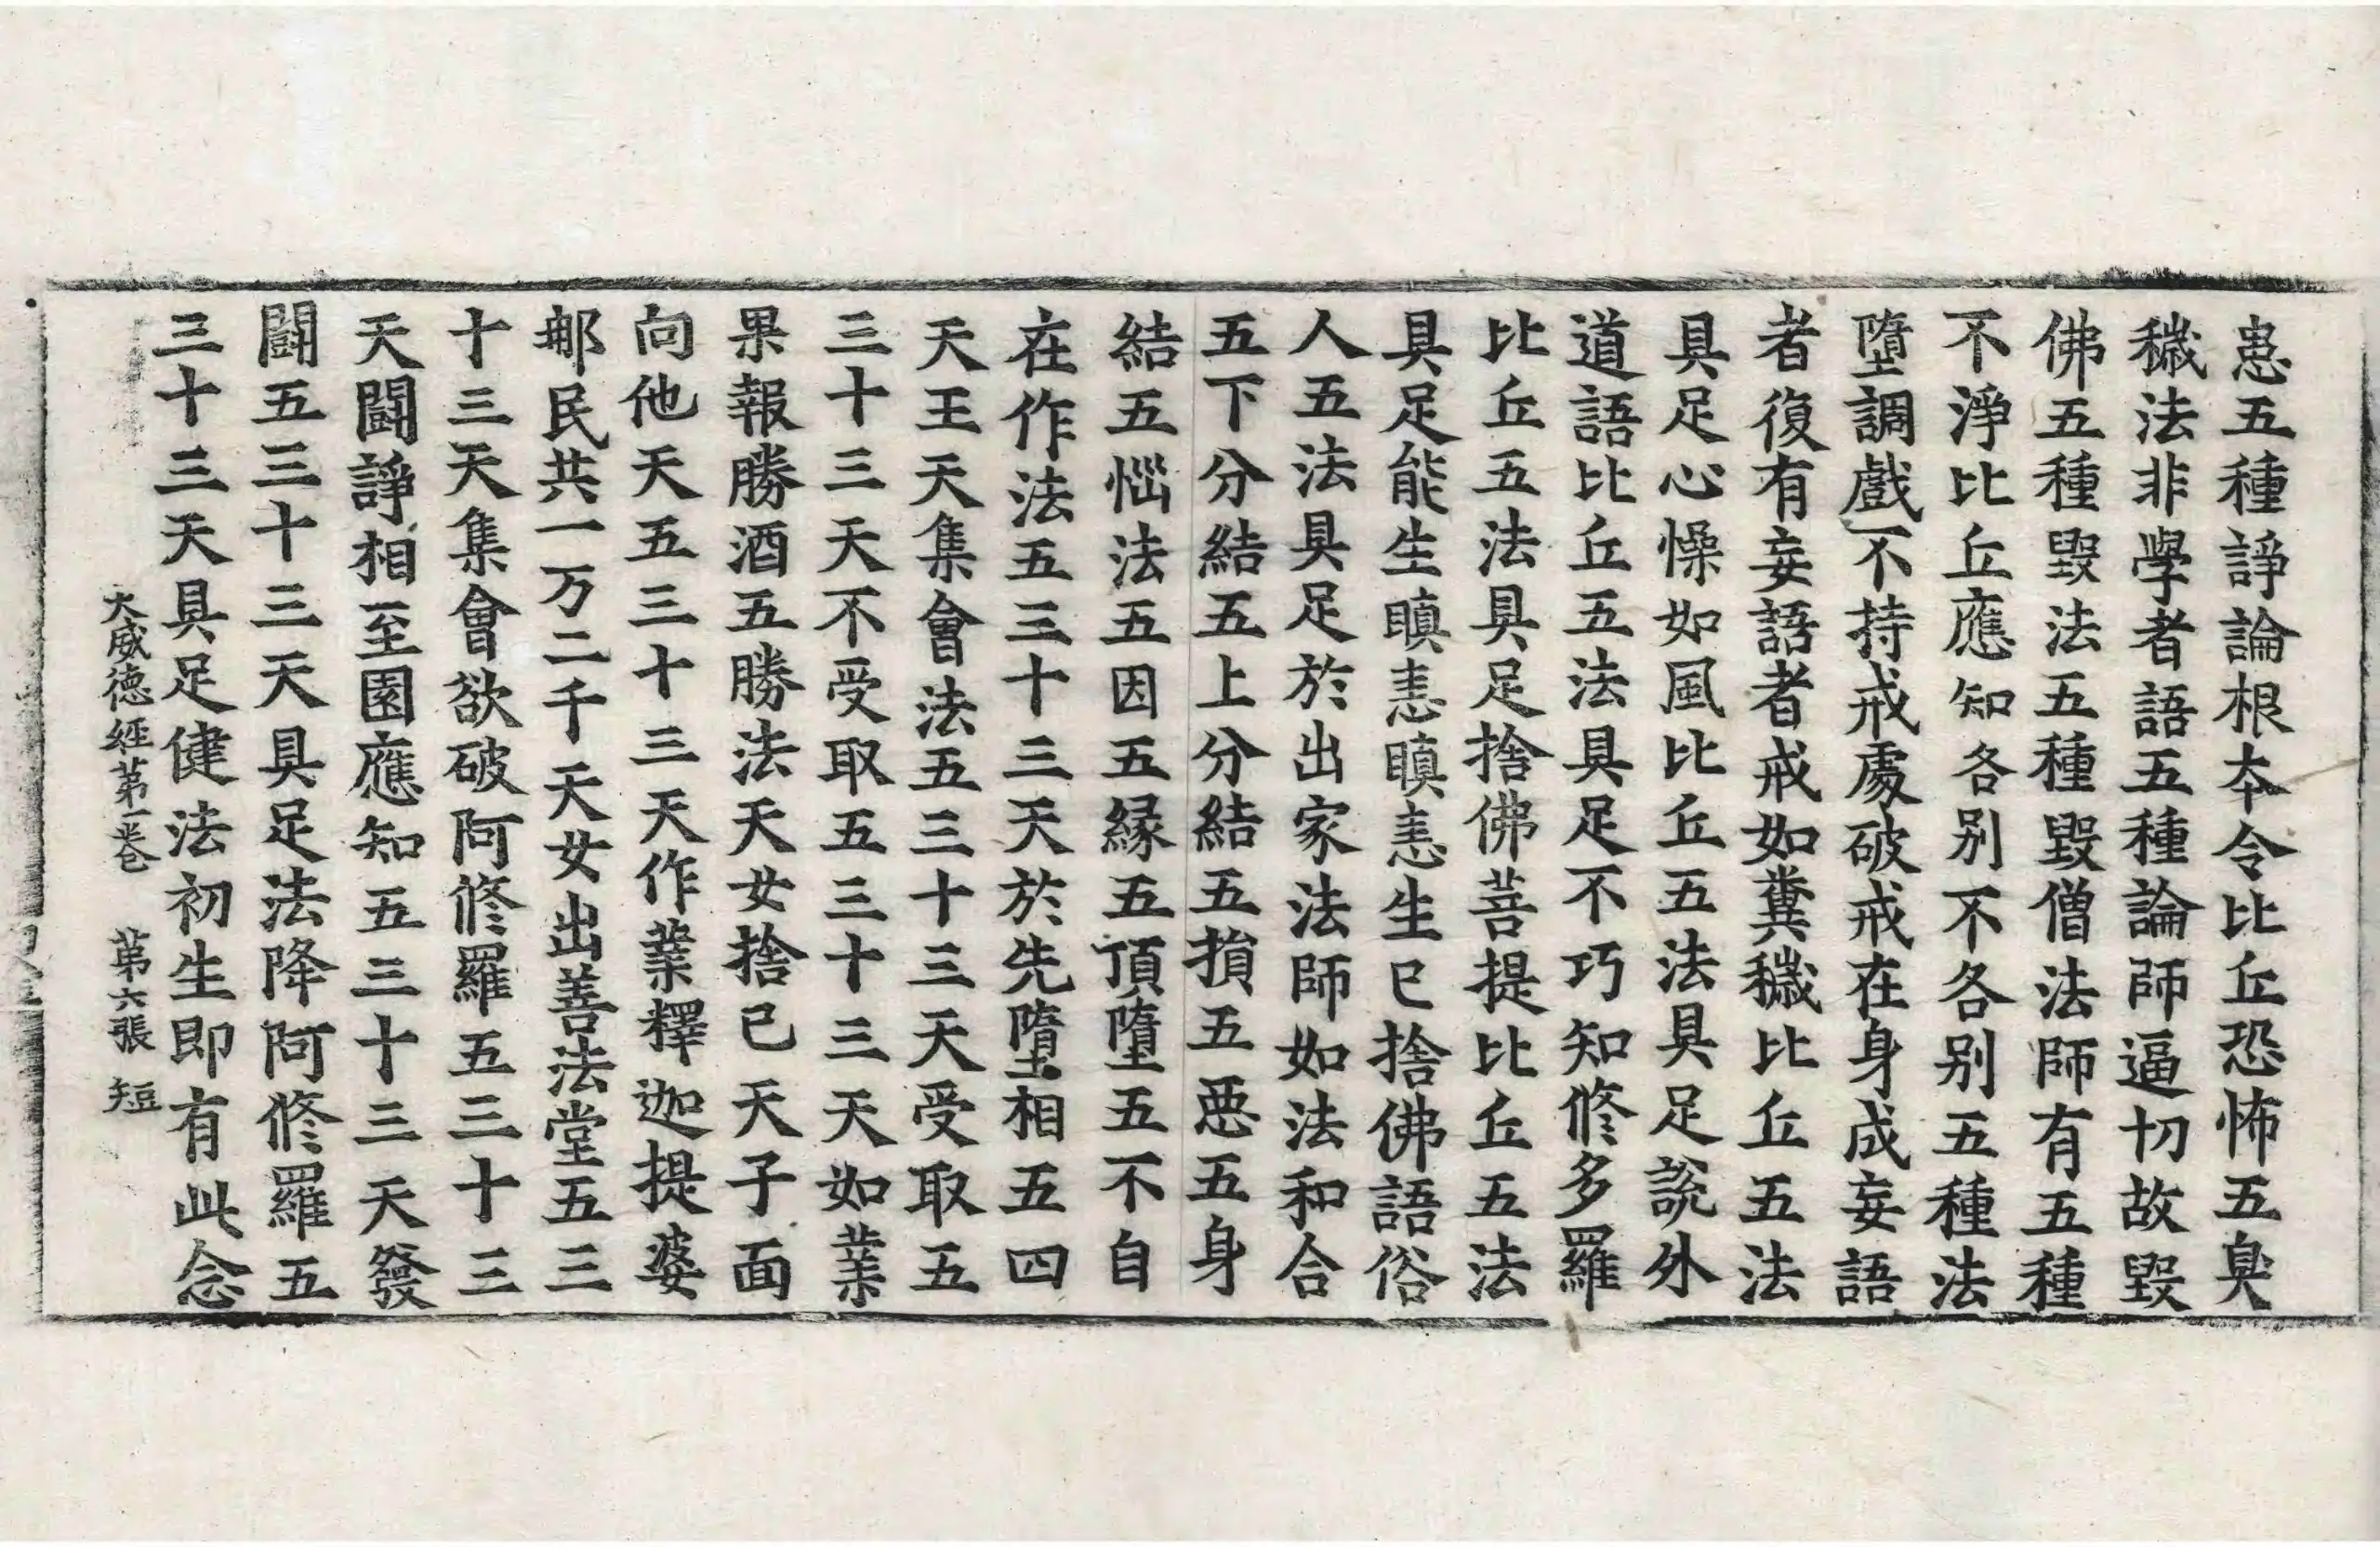 患五種諍論根本令比丘恐怖五臭
穢法非學者語五種論師逼切故毀
佛五種毀法五種毀僧法師有五種
不淨比丘應知各別不各別五種法
墮調戲不持戒處破戒在身成妄語
者復有妄語者戒如糞穢比丘五法
具足心懆如風比丘五法具足說外
道語比丘五法具足不巧知修多羅
比丘五法具足捨佛菩提比丘五法
具足能生瞋恚瞋恚生已捨佛語俗
人五法具足於出家法師如法和合
五下分結五上分結五損五惡五身
結五惱法五因五緣五頂墮五不自
在作法五三十三天於先墮相五四
天王天集會法五三十三天受取五
三十三天不受取五三十三天如業
果報勝酒五勝法天女捨已天子面
向他天五三十三天作業釋迦提婆
那民共一万二千天女出善法堂五三
十三天集會欲破阿修羅五三十三
天鬪諍相至園應知五三十三天發
鬪五三十三天具足法降阿修羅五
三十三天具足健法初生即有此念
大威德經第一卷　第六張　短